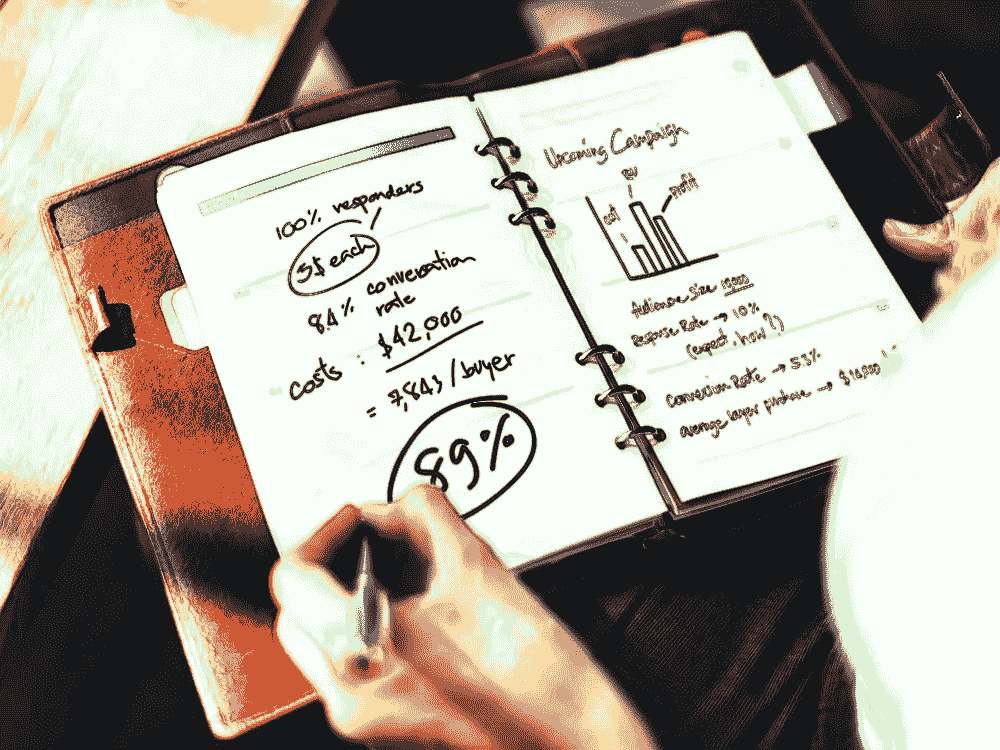 100% responders
3$ each
8.4% conversation
rate
costs : $42,000
= 7,843 /buyer
89%
Upcoming Campaign
profit
Audience Size 10,000
response Rate → 10%
(expect. how?)
Conversion Rate → 5.3%
average buyer purchase → $14,800